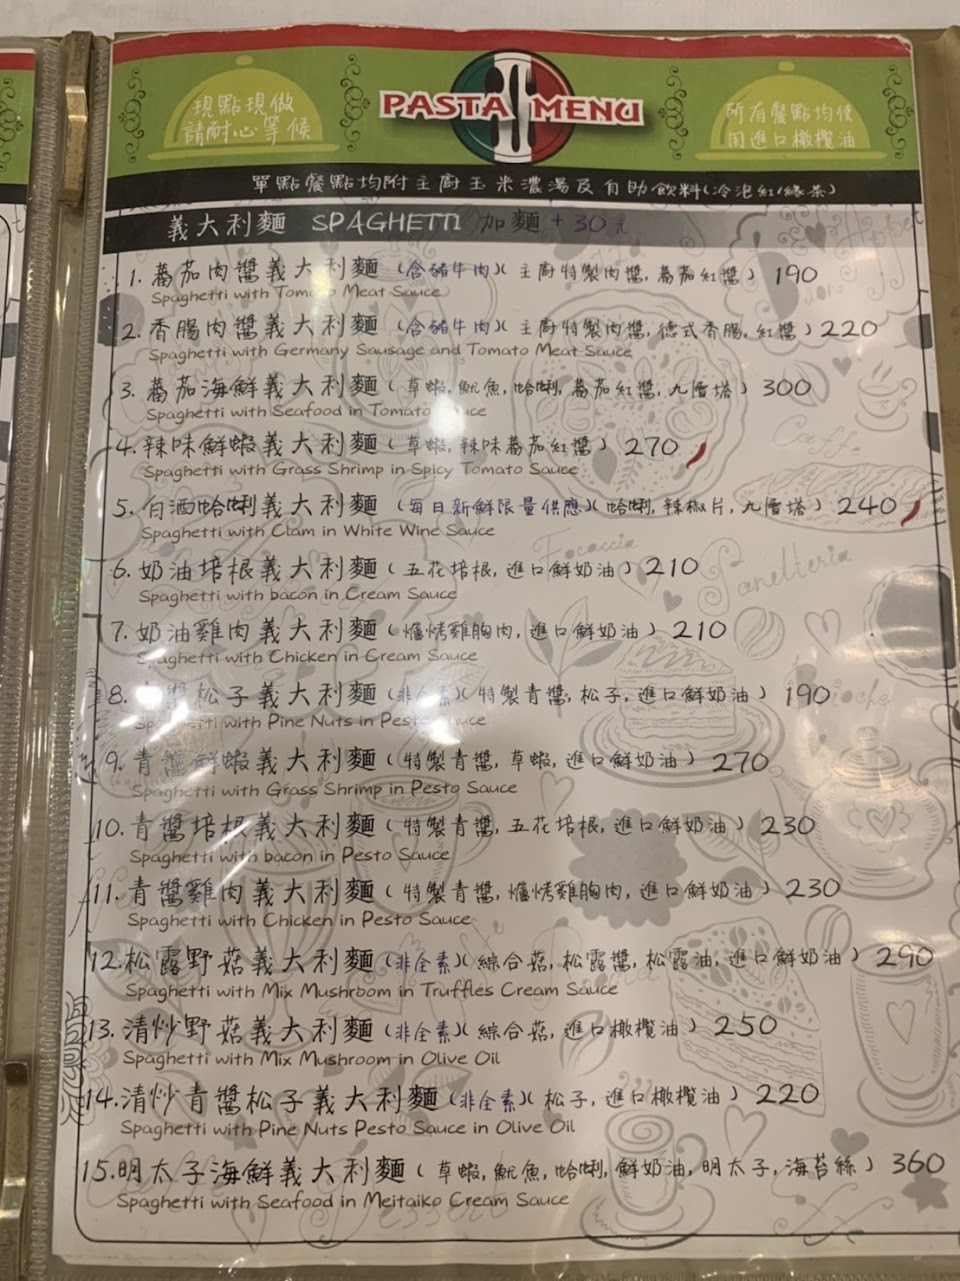 現點現做
請耐心等候
PASTA MENU
所有餐點均使
用進口橄欖油
單點餐點均附主廚玉米濃湯及自助飲料(冷泡紅/綠茶)
義大利麵 SPAGHETTI 加麵 +30元
1. 蕃茄肉醬義大利麵 (含豬牛肉)( 主廚特製肉醬, 蕃茄紅醬 ) 190
Spaghetti with Tomato Meat Sauce
2. 香腸肉醬義大利麵 (含豬牛肉)( 主廚特製肉醬, 德式香腸, 紅醬 ) 220
Spaghetti with Germany Sausage and Tomato Meat Sauce
3. 蕃茄海鮮義大利麵 ( 草蝦, 魷魚, 蛤蜊, 蕃茄紅醬, 九層塔 ) 300
Spaghetti with Seafood in Tomato Sauce
4. 辣味鮮蝦義大利麵 ( 草蝦, 辣味蕃茄紅醬 ) 270
Spaghetti with Grass Shrimp in Spicy Tomato Sauce
5. 白酒蛤蜊義大利麵 (每日新鮮限量供應)( 蛤蜊, 辣椒片, 九層塔 ) 240
Spaghetti with Clam in White Wine Sauce
6. 奶油培根義大利麵 ( 五花培根, 進口鮮奶油 ) 210
Spaghetti with bacon in Cream Sauce
7. 奶油雞肉義大利麵 ( 爐烤雞胸肉, 進口鮮奶油 ) 210
Spaghetti with Chicken in Cream Sauce
8. 青醬松子義大利麵 (非全素)( 特製青醬, 松子, 進口鮮奶油 ) 190
Spaghetti with Pine Nuts in Pesto Sauce
9. 青醬鮮蝦義大利麵 ( 特製青醬, 草蝦, 進口鮮奶油 ) 270
Spaghetti with Grass Shrimp in Pesto Sauce
10. 青醬培根義大利麵 ( 特製青醬, 五花培根, 進口鮮奶油 ) 230
Spaghetti with bacon in Pesto Sauce
11. 青醬雞肉義大利麵 ( 特製青醬, 爐烤雞胸肉, 進口鮮奶油 ) 230
Spaghetti with Chicken in Pesto Sauce
12. 松露野菇義大利麵 (非全素)( 綜合菇, 松露醬, 松露油, 進口鮮奶油 ) 290
Spaghetti with Mix Mushrbom in Truffles Cream Sauce
13. 清炒野菇義大利麵 (非全素)( 綜合菇, 進口橄欖油 ) 250
Spaghetti with Mix Mushroom in Olive Oil
14. 清炒青醬松子義大利麵 (非全素)( 松子, 進口橄欖油 ) 220
Spaghetti with Pine Nuts Pesto Sauce in Olive Oil
15. 明太子海鮮義大利麵 ( 草蝦, 魷魚, 蛤蜊, 鮮奶油, 明太子, 海苔絲 ) 360
Spaghetti with Seafood in Meitaiko Cream Sauce